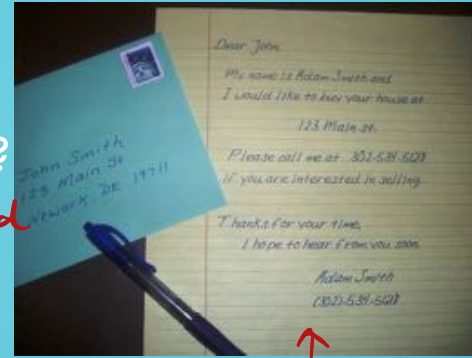 John Smith
123 Main St.
Newark, DE 19711
Dear John,
My name is Adam Smith and
I would like to buy your house at
123 Main st.
Please call me at 302-534-5128
if you are interested in selling.
Thanks for your time,
I hope to hear from you soon.
Adam Smith
(302)-534-5128